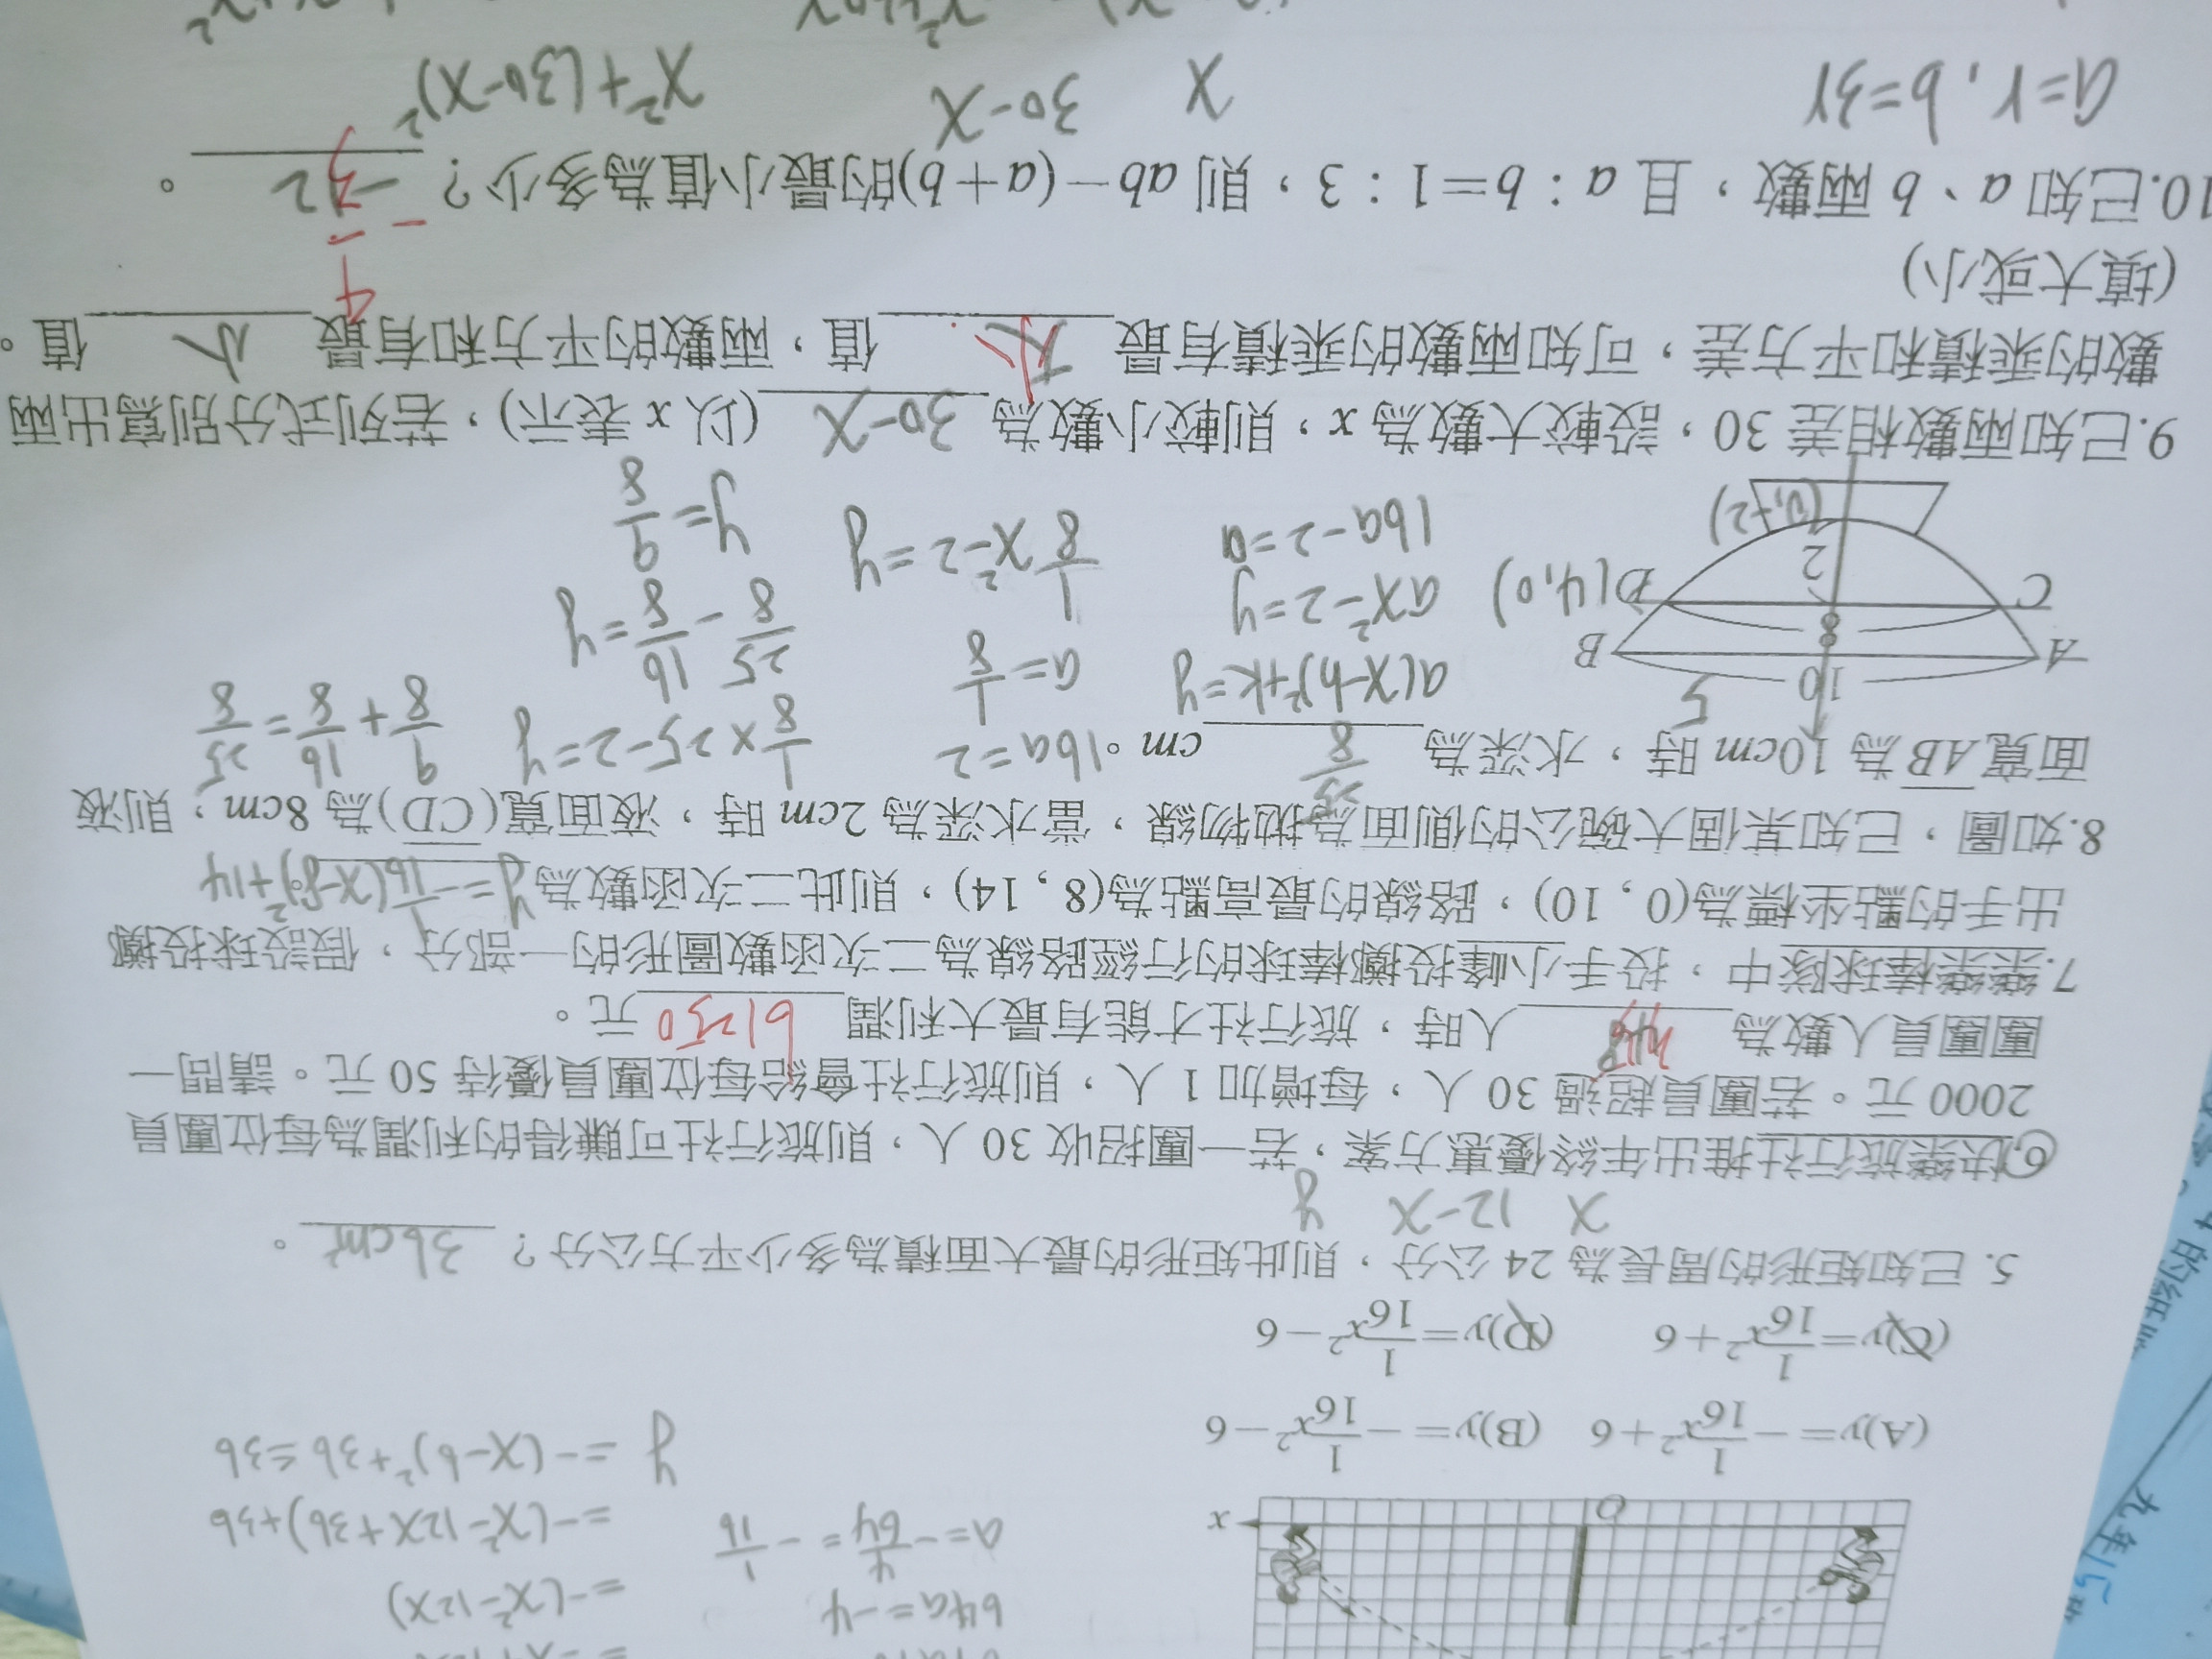 64a=-4
a=-4/64=-1/16
=-(x²-12x)
=-(x²-12x+36)+36
y=-(x-6)²+36≤36
O
x
(A)y=-1/16x²+6 (B)y=-1/16x²-6
(C)y=1/16x²+6 (D)y=1/16x²-6
5. 已知矩形的周長為 24 公分,則此矩形的最大面積為多少平方公分? 36cm² 。
x 12-x y
6.快樂旅行社推出年終優惠方案,若一團招收 30 人,則旅行社可賺得的利潤為每位團員
2000 元。若團員超過 30 人,每增加 1 人,則旅行社會給每位團員優待 50 元。請問一
團團員人數為 人時,旅行社才能有最大利潤 61250 元。
7.樂樂棒球隊中,投手小峰投擲棒球的行經路線為二次函數圖形的一部分,假設球投擲
出手的點坐標為(0,10),路線的最高點為(8,14),則此二次函數為 y=-1/16(x-8)²+14
8.如圖,已知某個大碗公的側面為拋物線,當水深為 2cm 時,液面寬(CD)為 8cm,則液
面寬AB為 10cm 時,水深為 25/8 cm。
16a=2
1/8×25-2=y
9/8+16/8=25/8
5
10
A
B
a(x-h)²+k=y
a=1/8
25/8-16/8=y
8
C
D(4,0)
ax²-2=y
1/8x²-2=y
y=9/8
2
(0,-2)
16a-2=0
9.已知兩數相差 30,設較大數為 x,則較小數為 30-x (以 x 表示),若列式分別寫出兩
數的乘積和平方差,可知兩數的乘積有最 小 值,兩數的平方和有最 小 值。
(填大或小)
10.已知 a、b 兩數,且 a:b=1:3,則 ab-(a+b)的最小值為多少? -4/3 。
a=r, b=3r
x 30-x x²+(30-x)²